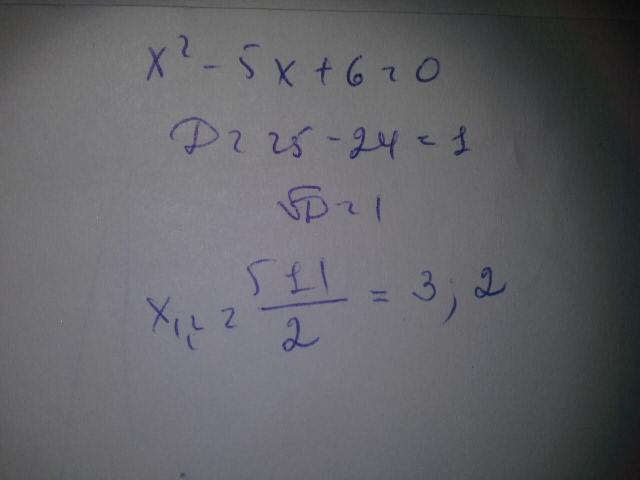 x² - 5x + 6 = 0
D = 25 - 24 = 1
√D = 1
x₁,₂ = (5 ± 1)/2 = 3; 2